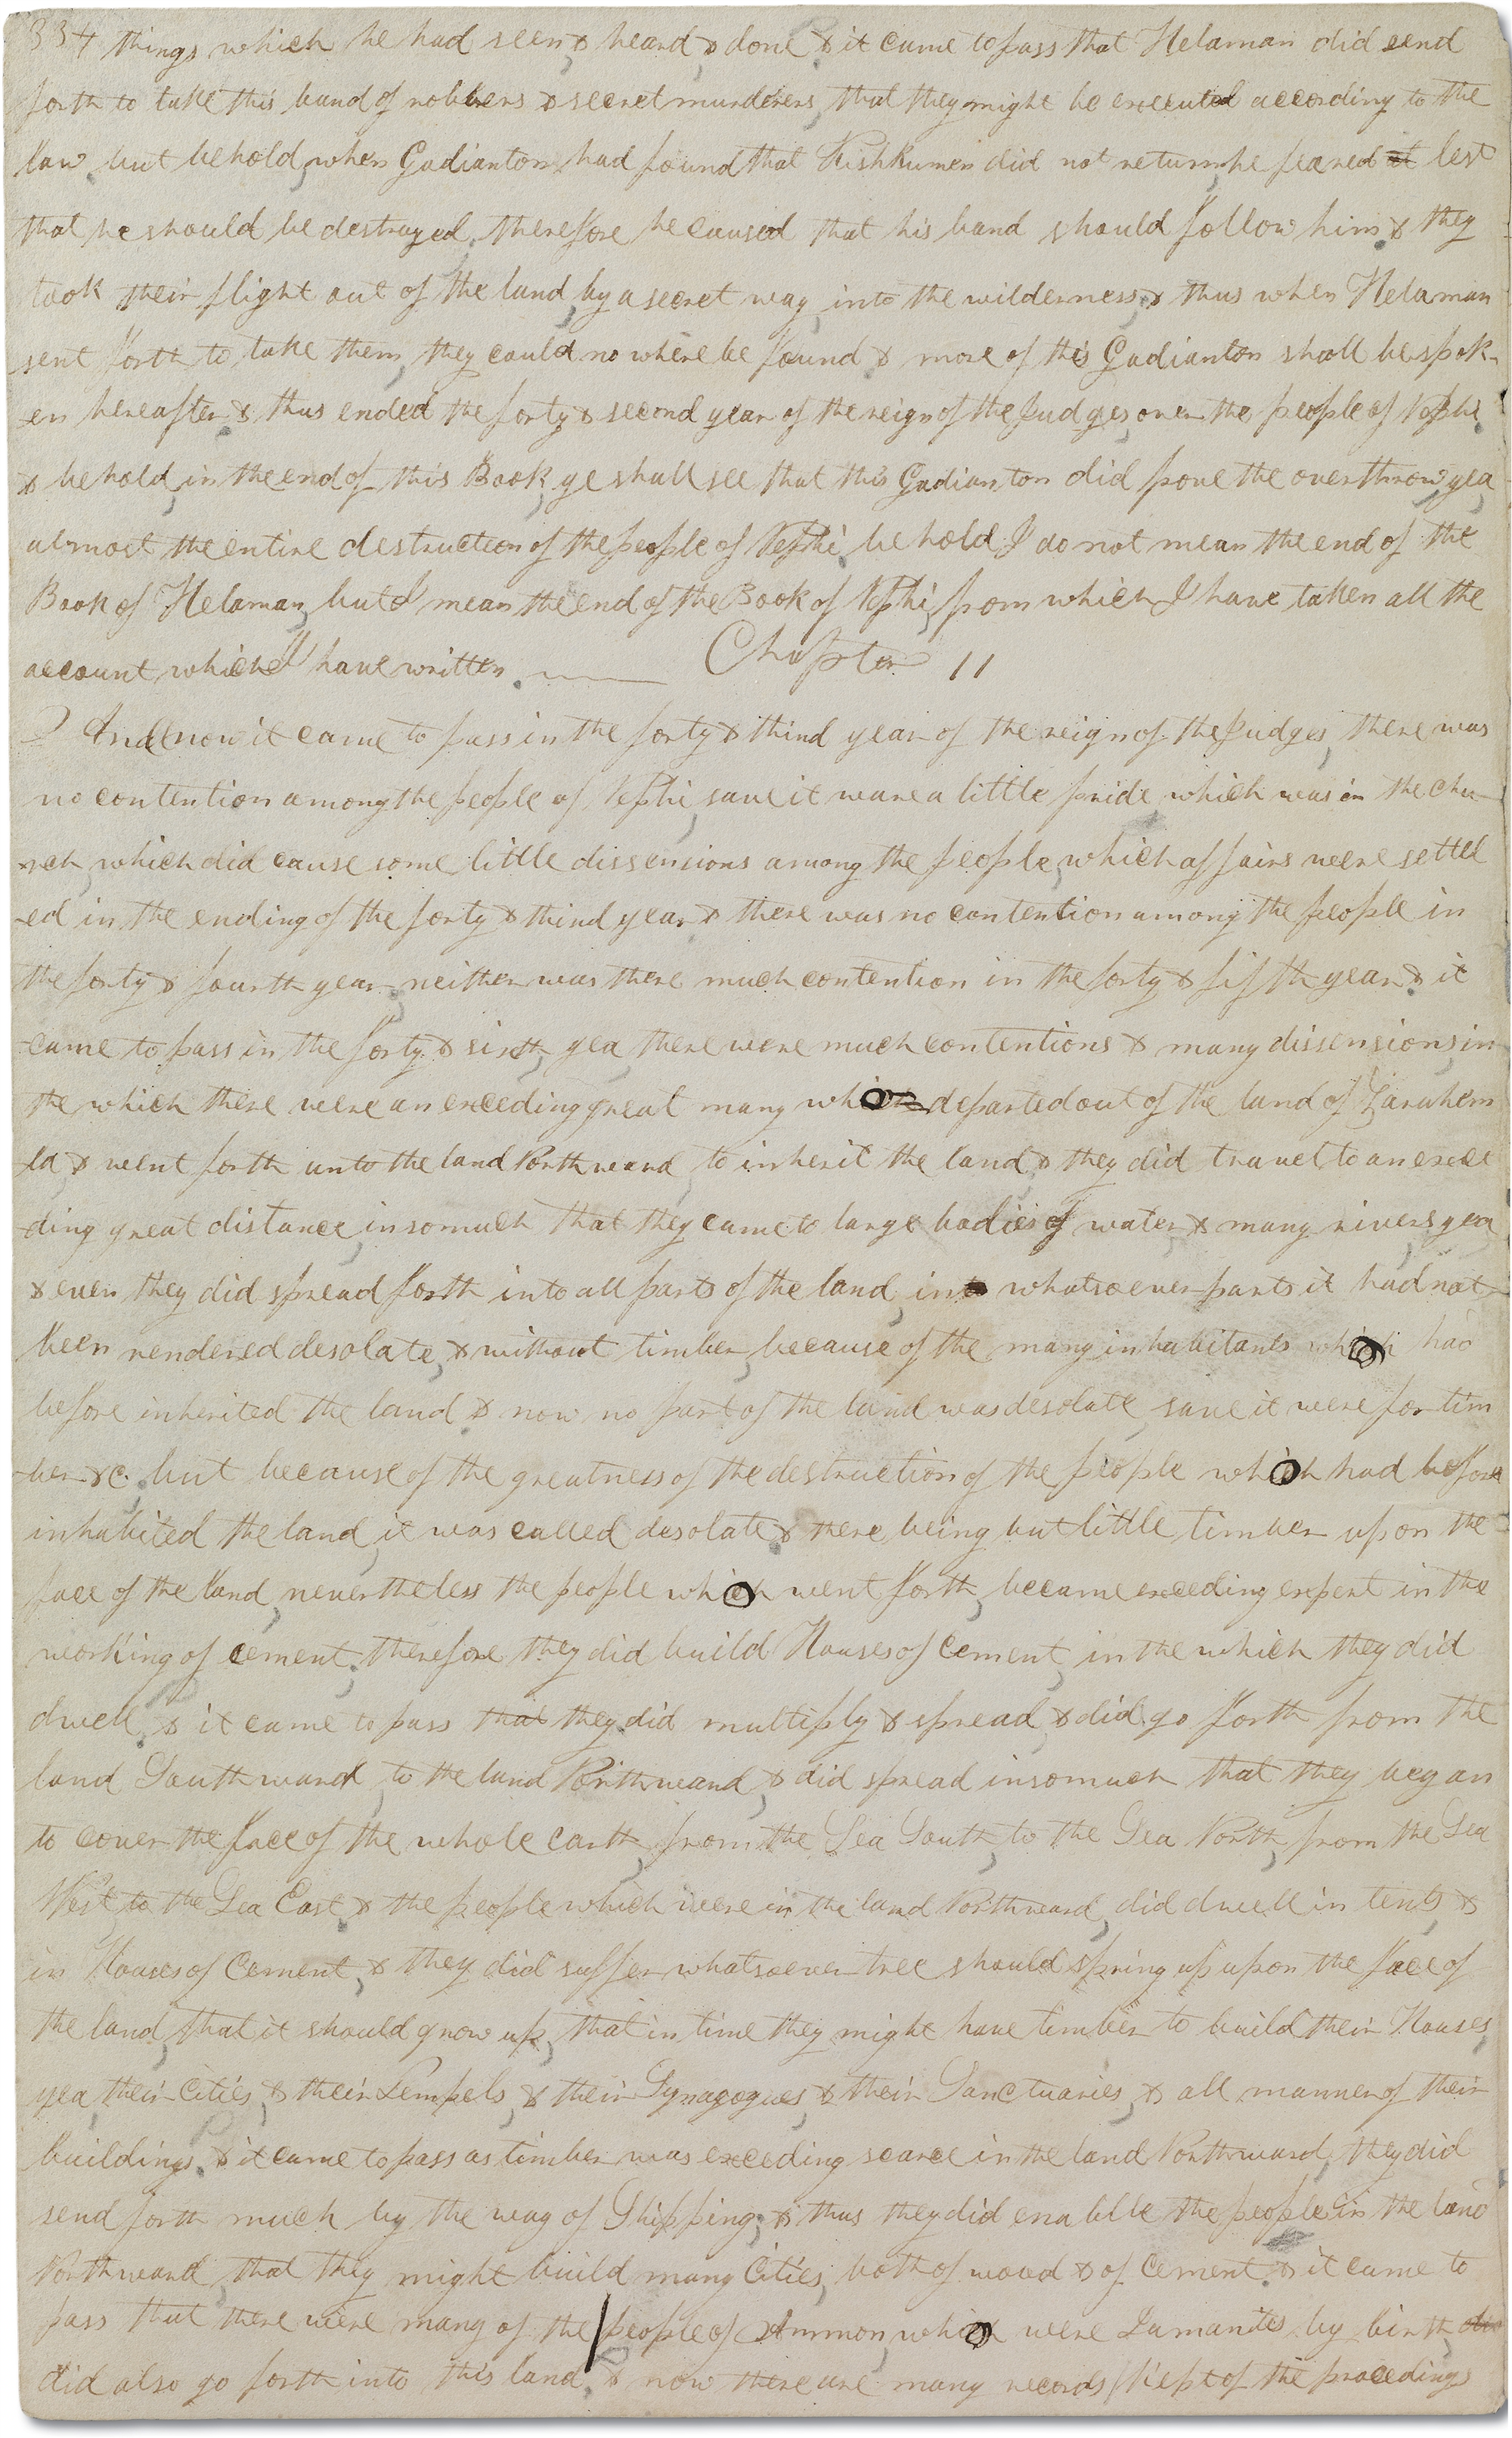 334 things which he had seen & heard & done & it came to pass that Helaman did send
forth to take this band of robbers & secret murderers, that they might be executed according to the
law. but behold, when Gadianton, had found that Kishkumen did not return, he feared at lest
that he should be destroyed, therefore he caused that his band should follow him. & they
took their flight out of the land, by a secret way, into the wilderness, & thus when Helaman
sent forth to take them, they could no where be found & more of this Gadianton shall be spok-
-en hereafter. & thus ended the forty & second year of the reign of the Judges, over the people of Nephi.
& behold, in the end of this Book, ye shall see that this Gadianton did prove the overthrow, yea
almost the entire destruction of the people of Nephi. behold I do not mean the end of the
Book of Helaman, but I mean the end of the Book of Nephi, from which I have taken all the
account which I have written. —— Chapter 11
And now it came to pass in the forty & third year of the reign of the Judges, there was
no contention among the people of Nephi, save it ware a little pride which was in the chu-
-rch, which did cause some little dissensions among the people, which affairs were settel
-ed in the ending of the forty & third year & there was no contention among the people in
the forty & fourth year, neither was there much contention in the forty & fifth year. & it
came to pass in the forty & sixth, yea, there were much contentions & many dissensions, in
the which there were an exceeding great many which departed out of the land of Zarahem
-la, & went forth unto the land Northward to inherit the land & they did travel to an excee
-ding great distance, insomuch that they came to large bodies of water, & many rivers, yea
& even they did spread forth into all parts of the land, into whatsoever parts it had not
been rendered desolate, & without timber, because of the many inhabitants which had
before inherited the land & now no part of the land was desolate, save it were for tim
-ber &c. but because of the greatness of the destruction of the people which had before
inhabited the land, it was called desolate & there being but little timber upon the
face of the land, nevertheless the people which went forth, became exceeding expert in the
working of cement, therefore they did build Houses of Cement, in the which they did
dwell. & it came to pass that they did multiply & spread & did go forth from the
land Southward, to the land Northward, & did spread insomuch that they began
to cover the face of the whole earth, from the Sea South, to the Sea North, from the Sea
West to the Sea East. & the people which were in the land Northward, did dwell in tents &
in Houses of Cement, & they did suffer whatsoever tree should spring up upon the face of
the land, that it should grow up, that in time they might have timber to build their Houses,
yea, their Cities, & their Tempels, & their Synagogues, & their Sanctuaries, & all manner of their
buildings. & it came to pass as timber was exceeding scarce in the land Northward, they did
send forth much by the way of Shipping, & thus they did enable the people in the land
Northward, that they might build many Cities, both of wood & of Cement. & it came to
pass that there were many of the people of Ammon, which were Lamanites by birth,
did also go forth into this land. & now there are many records kept of the proceedings